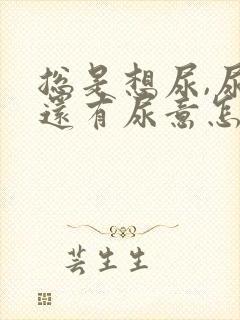 总是想尿,尿
还有尿意怎
芸生生